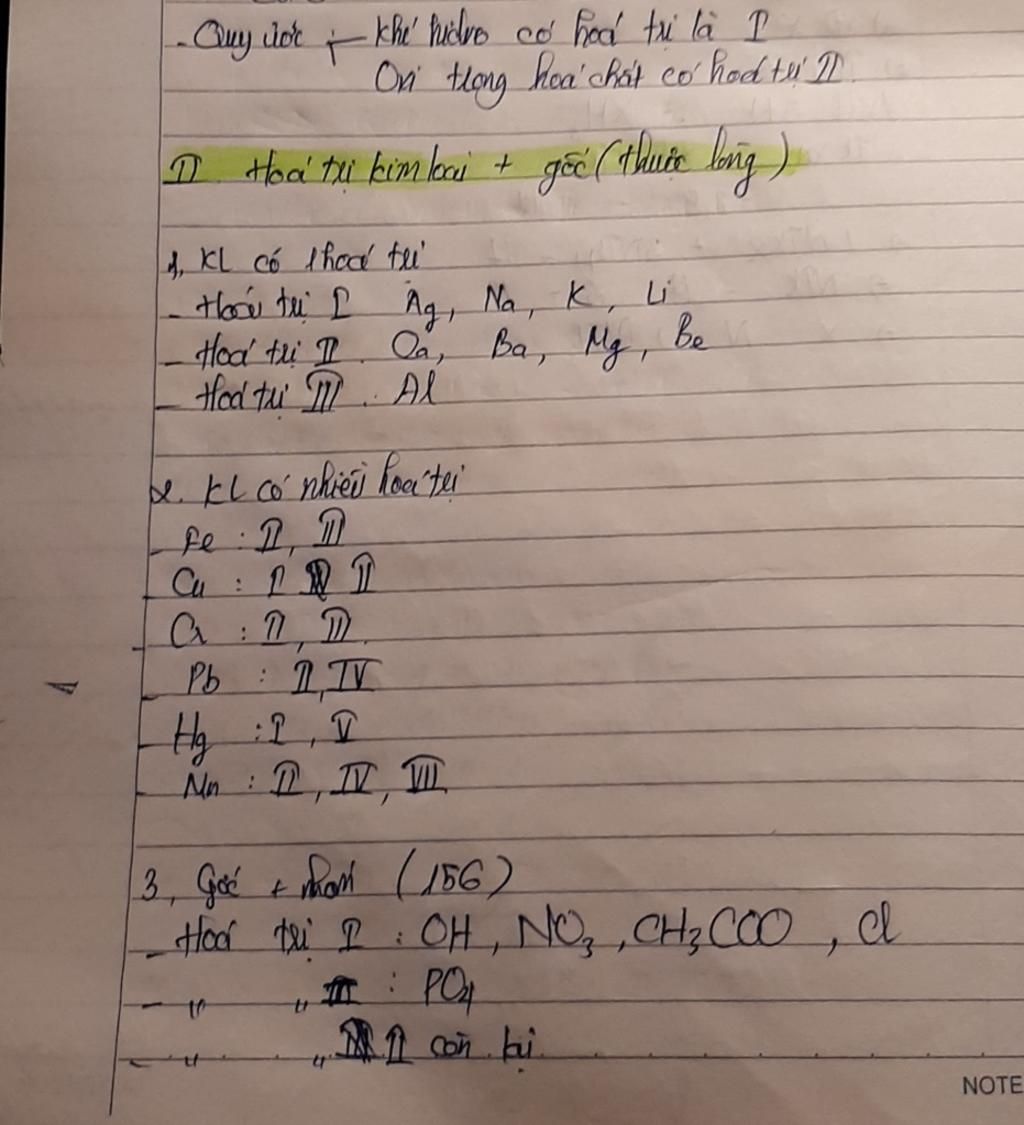 - Quy ước + khí hidro có hoá trị là I
Oxi trong hoá chất có hoá trị II
II Hoá trị kim loại + gốc (thuộc lòng)
1, KL có 1 hoá trị
- Hoá trị I Ag, Na, K, Li
- Hoá trị II. Ca, Ba, Mg, Be
- Hoá trị III. Al
2. KL có nhiều hoá trị
- Fe : II, III
- Cu : I II
- Cr : II, III.
- Pb : II, IV
- Hg : I, V
- Mn : II, IV, VII
3, Gốc + nhóm (15G)
- Hoá trị I : OH, NO₃, CH₃COO, Cl
- " " III : PO₄
- " " II còn lại
NOTE